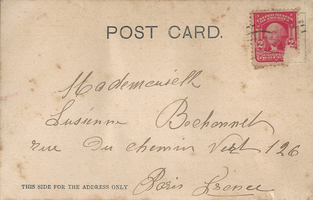 POST CARD.
Mademoiselle
Lusienne Bochonnet
rue Du chemin Vert 126
THIS SIDE FOR THE ADDRESS ONLY
Paris France